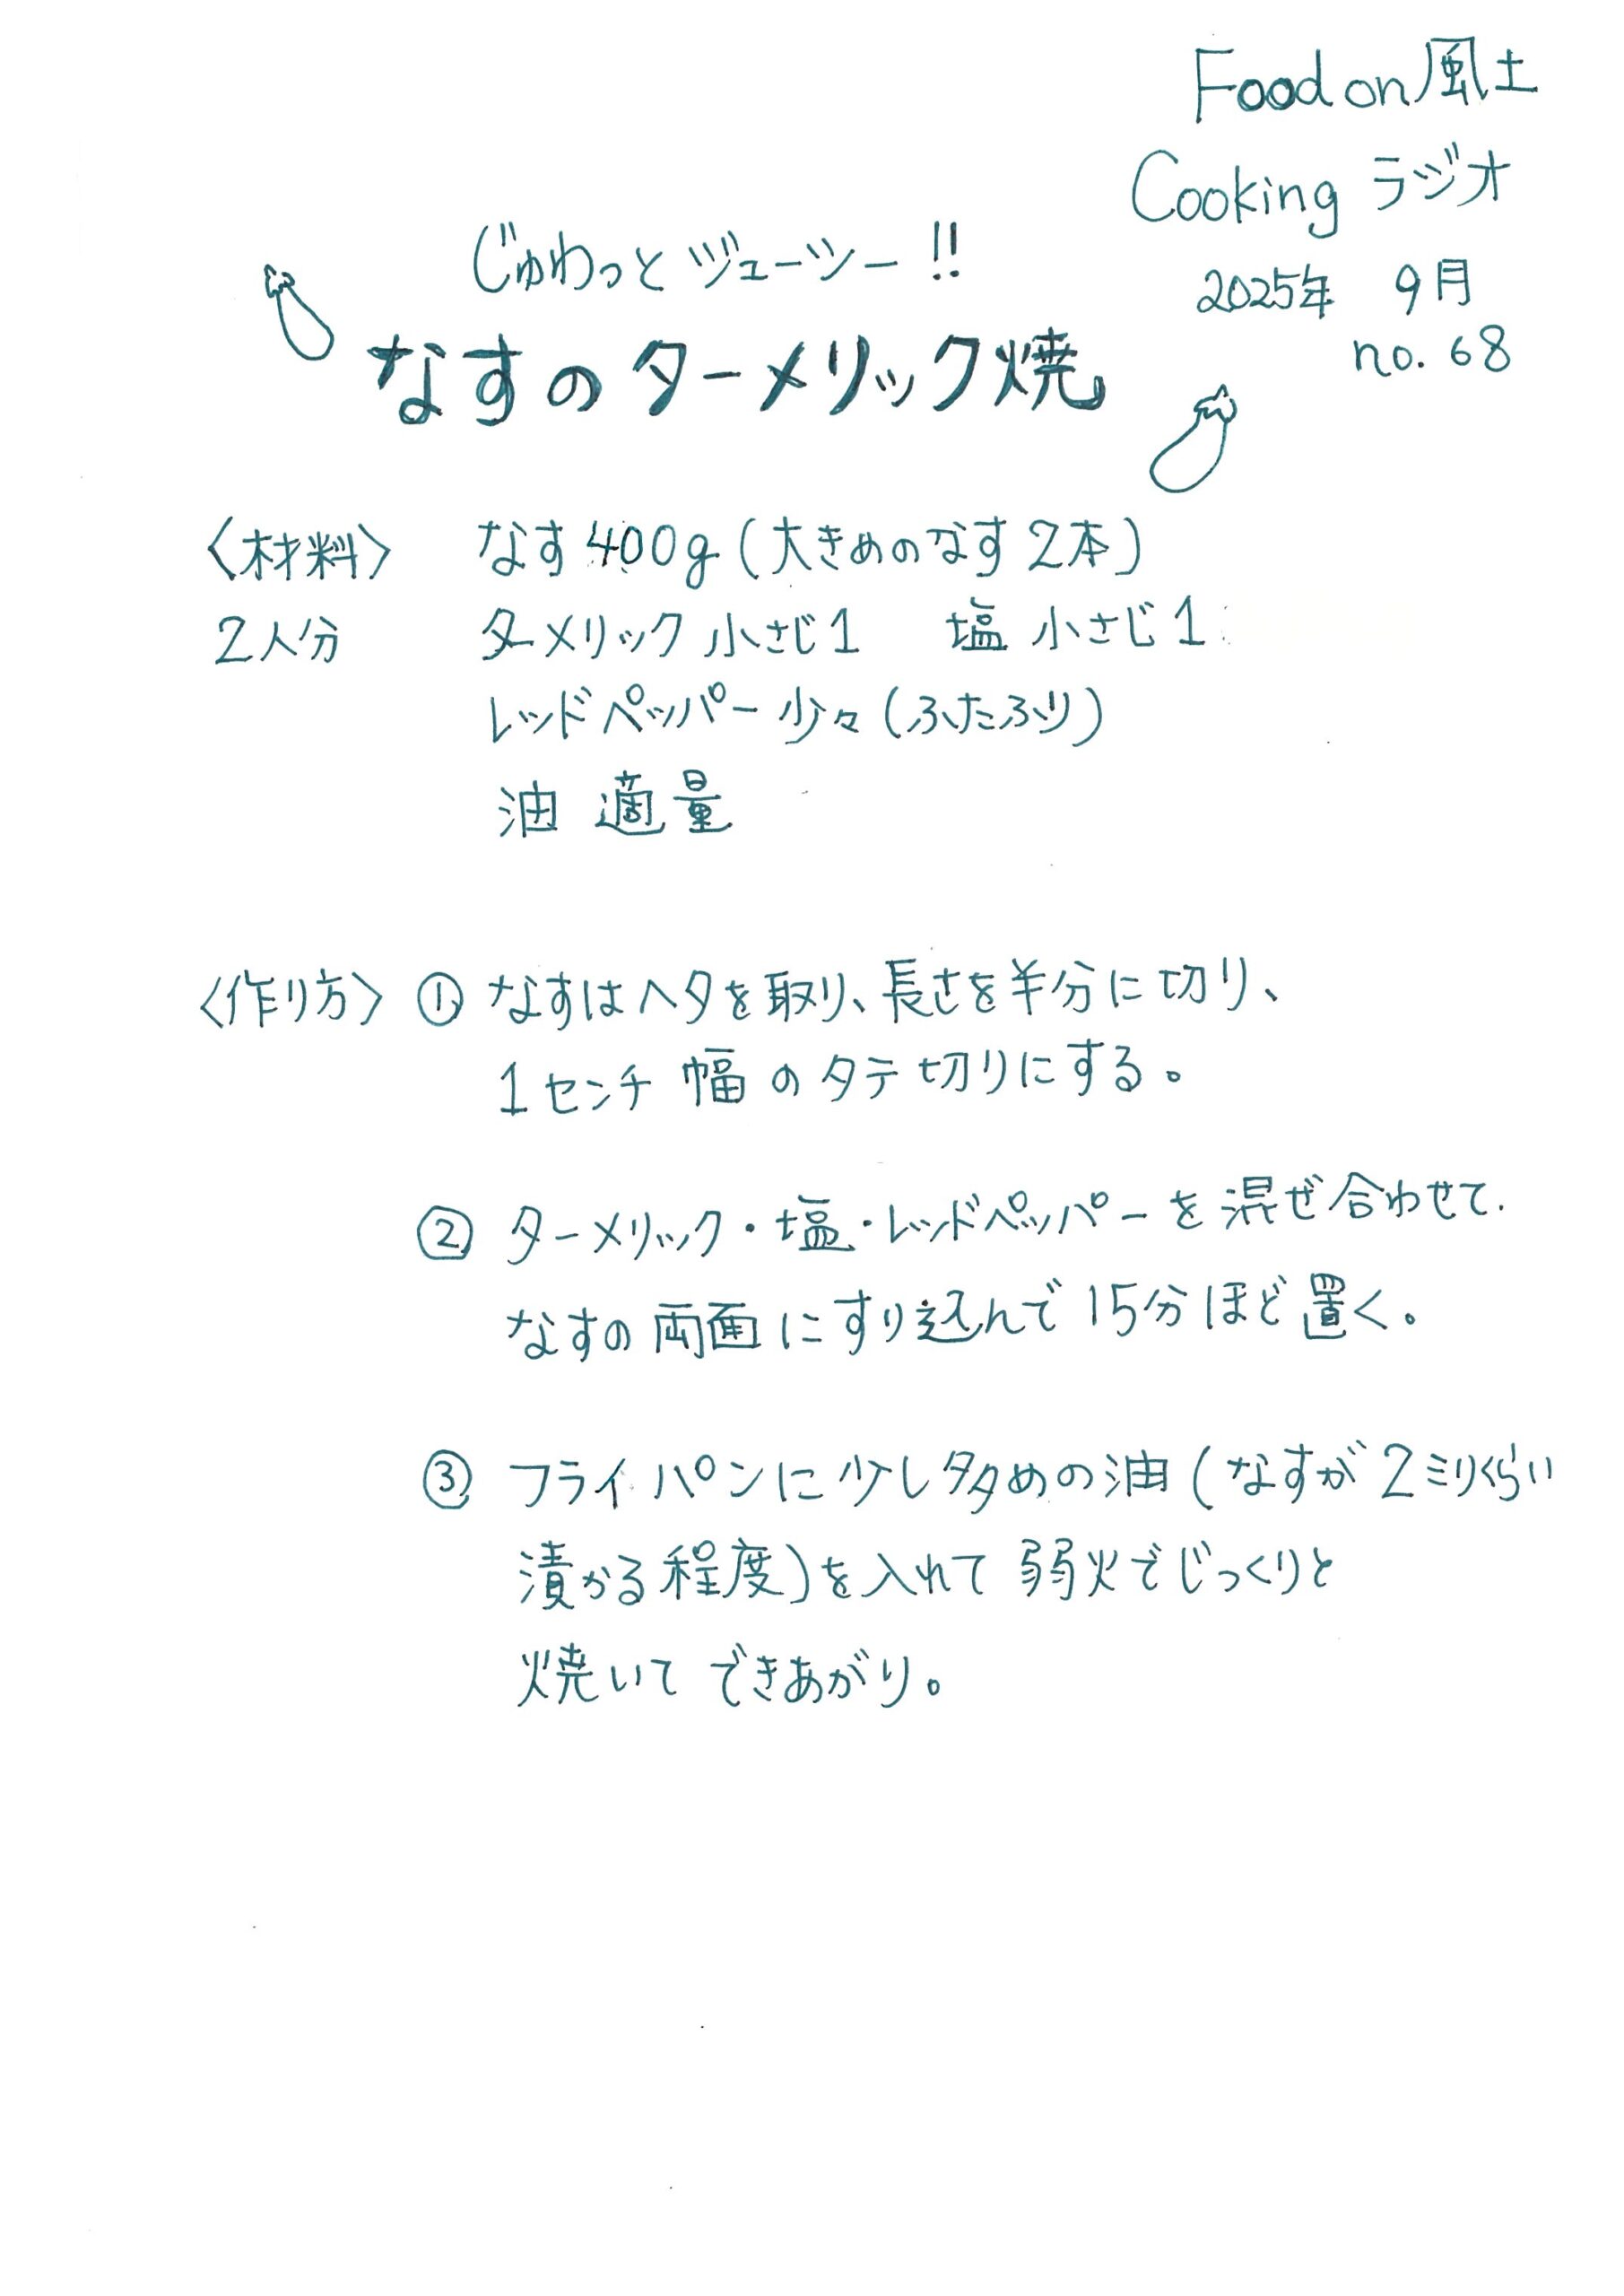 Food on 風土
Cooking ラジオ
2025年 9月
no. 68
じゅわっとジューシー!!
なすのターメリック焼
〈材料〉 なす400g(大きめのなす2本)
2人分 ターメリック小さじ1 塩 小さじ1
レッドペッパー少々(ふたふり)
油 適量
〈作り方〉 ① なすはヘタを取り、長さを半分に切り、
1センチ幅のタテ切りにする。
② ターメリック・塩・レッドペッパーを混ぜ合わせて.
なすの両面にすり込んで15分ほど置く。
③ フライパンに少し多めの油(なすが2ミリくらい
漬かる程度)を入れて 弱火でじっくりと
焼いて できあがり。